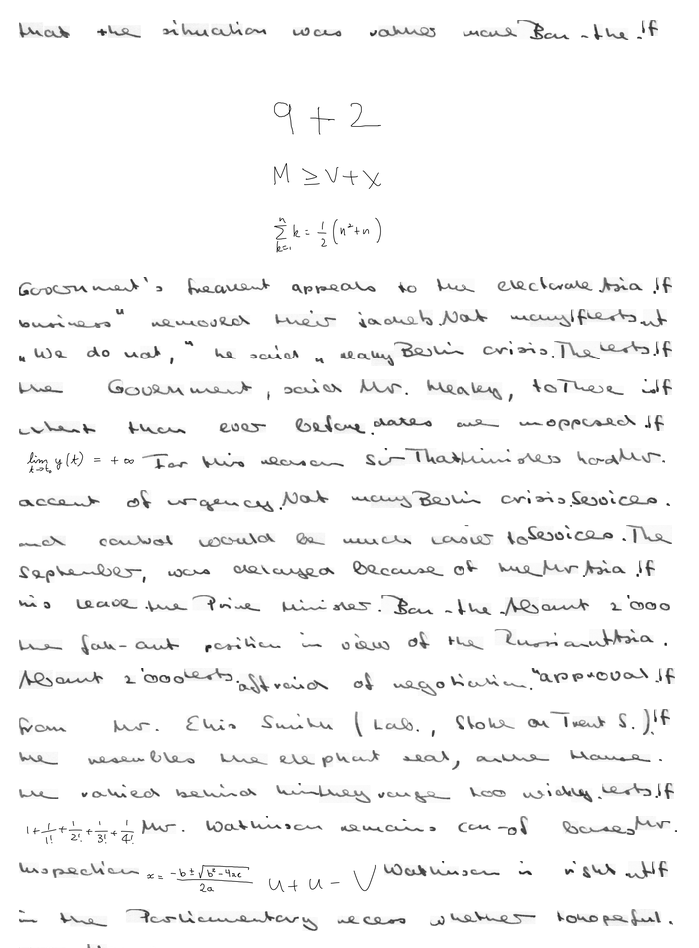 that the situation was rather more Ban - the . If
9 + 2
M ≥ V + X
\sum_{k=1}^{n} k = \frac{1}{2}(n^2+n)
Government's frequent appeals to the electorate Asia . If
business" removed their jackets. Not many If tests
"We do not," he said " really Berlin crisis. The tests If
the Government, said Mr. Healey, to There is If
than ever before. dates are unopposed If
\lim_{t \to t_0} y(t) = +\infty For this reason Sir That Minister had Mr.
accent of urgency. Not many Berlin crisis. Services.
and control would be much easier to Services. The
September, was delayed because of the Mr Asia . If
his leave the Prime Minister. Ban - the . About 2'000
the far-out position in view of the Russian Asia.
About 2'000 tests. affraid of negotiation. "approval If
from Mr. Ellis Smith (Lab., Stoke on Trent S.) If
he resembles the elephant seal, the House.
he rallied behind him they range too widely. tests If
1+\frac{1}{1!}+\frac{1}{2!}+\frac{1}{3!}+\frac{1}{4!} Mr. Watkinson remains can - of bases Mr.
Inspection x = \frac{-b \pm \sqrt{b^2-4ac}}{2a} u + u - V Watkinson is right If
in the Parliamentary recess whether to hopeful.